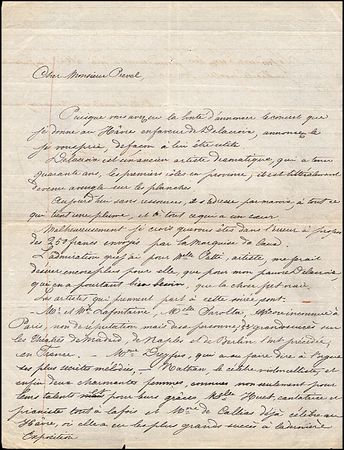 Cher Monsieur Prevel,
Puisque vous avez eu la bonté d'annoncer le concert que
je donne au Hâvre en faveur de Delacroix, annoncez le
je vous prie, de façon à leur être utile.
Delacroix est un ancien artiste dramatique, qui a tenu
quarante ans, les premiers rôles en province, il est littéralement
devenu aveugle sur les planches
Aujourd'hui sans ressources, il s'adresse par ma voix à tout ce
qui tient une plume, et à tous ceux qui a un cœur
Malheureusement je crois que vous êtes dans l'erreur à propos
des 250 francs envoyés par la Marquise de Caux.
L'admiration que j'ai pour Mme Patti, artiste, me ferait
désirer encore plus pour elle que pour mon pauvre Delacroix,
qui en a pourtant bien besoin, que la chose fut vraie.
Les artistes qui prennent part à cette soirée sont :
Mr et Mme Lafontaine, Melle Sarolta, inconnue à
Paris, non de réputation mais de sa personne, grands succès sur
les théâtres de Madrid, de Naples et de Berlin l'ont précédée
en France. Mme Dreyfus, qui a su faire dire à l'orgue
ses plus secrètes mélodies, Nathan, le célèbre violoncelliste, et
enfin deux charmantes femmes, connues non seulement pour
leurs talents mais pour leurs grâces, Melle Huet cantatrice et
pianiste tout à la fois et Mme de Callias déjà célèbre au
Hâvre, où elle a eu les plus grands succès à la dernière
Exposition